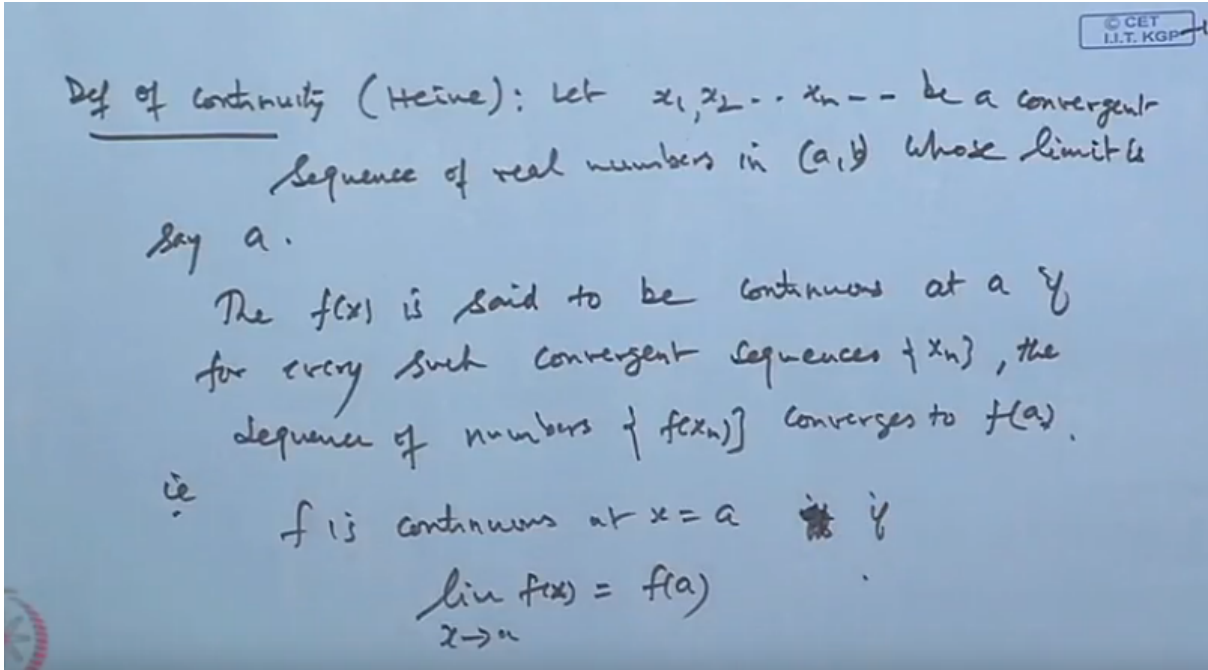 © CET
I.I.T. KGP
Def of continuity (Heine): Let x₁, x₂ .. xₙ -- be a convergent
sequence of real numbers in (a, b) whose limit is
say a.
The f(x) is said to be continuous at a if
for every such convergent sequences {xₙ}, the
sequence of numbers {f(xₙ)} converges to f(a).
ie
f is continuous at x = a if
lim f(x) = f(a)
x→a